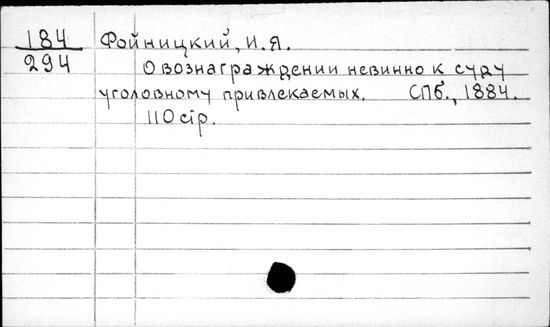 184 Фойницкий, И.Я.
294 О вознаграждении невинно к суду
уголовному привлекаемых. СПб., 1884.
110 стр.